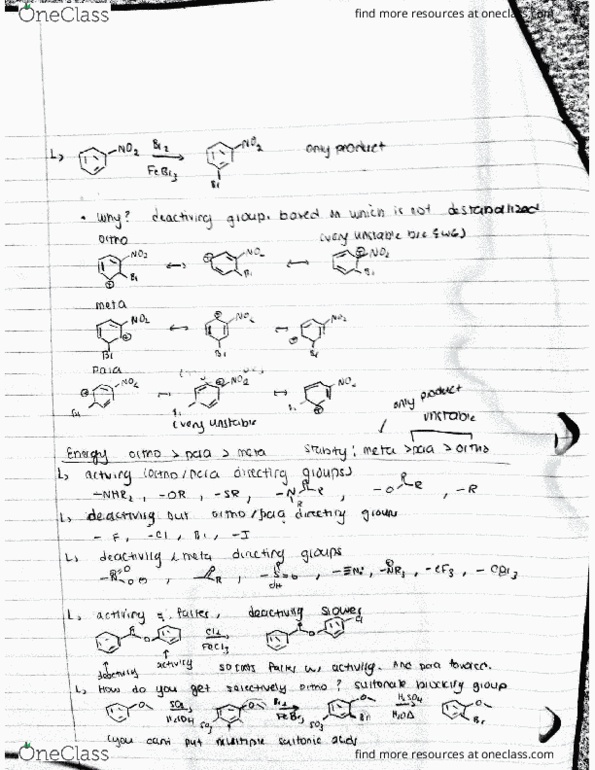 OneClass
find more resources at oneclass.com
NO2 Br2 FeBr3 NO2 Br only product
• Why? deactiving group. based on which is not destabalized
ortho (very unstable b/c EWG)
NO2 Br NO2 Br NO2 Br
meta
NO2 Br NO2 Br NO2 Br
para
NO2 NO2 NO2
(very unstable
only product
unstable
Energy ortho > para > meta Stability: meta > para > ortho
L> activing (ortho/para directing groups)
-NHR2, -OR, -SR, -N R R, -O R, -R
L> deactiving but ortho/para directing groups
-F, -Cl, Br, -I
L> deactiving & meta directing groups
R, OH, -NR3, -CF3, -CBr3
L> activing = faster, deactiving slower
O Cl2 FeCl3 O Cl
deactiving activing so reacts faster w/ activing. And para favored.
L> How do you get selectively ortho? sulfonate blocking group
O SO3 H2SO4 SO3 Br2 FeBr3 SO3 Br H2SO4 H2O Δ Br
(you cant put multiple sulfonic acids
OneClass
find more resources at oneclass.com